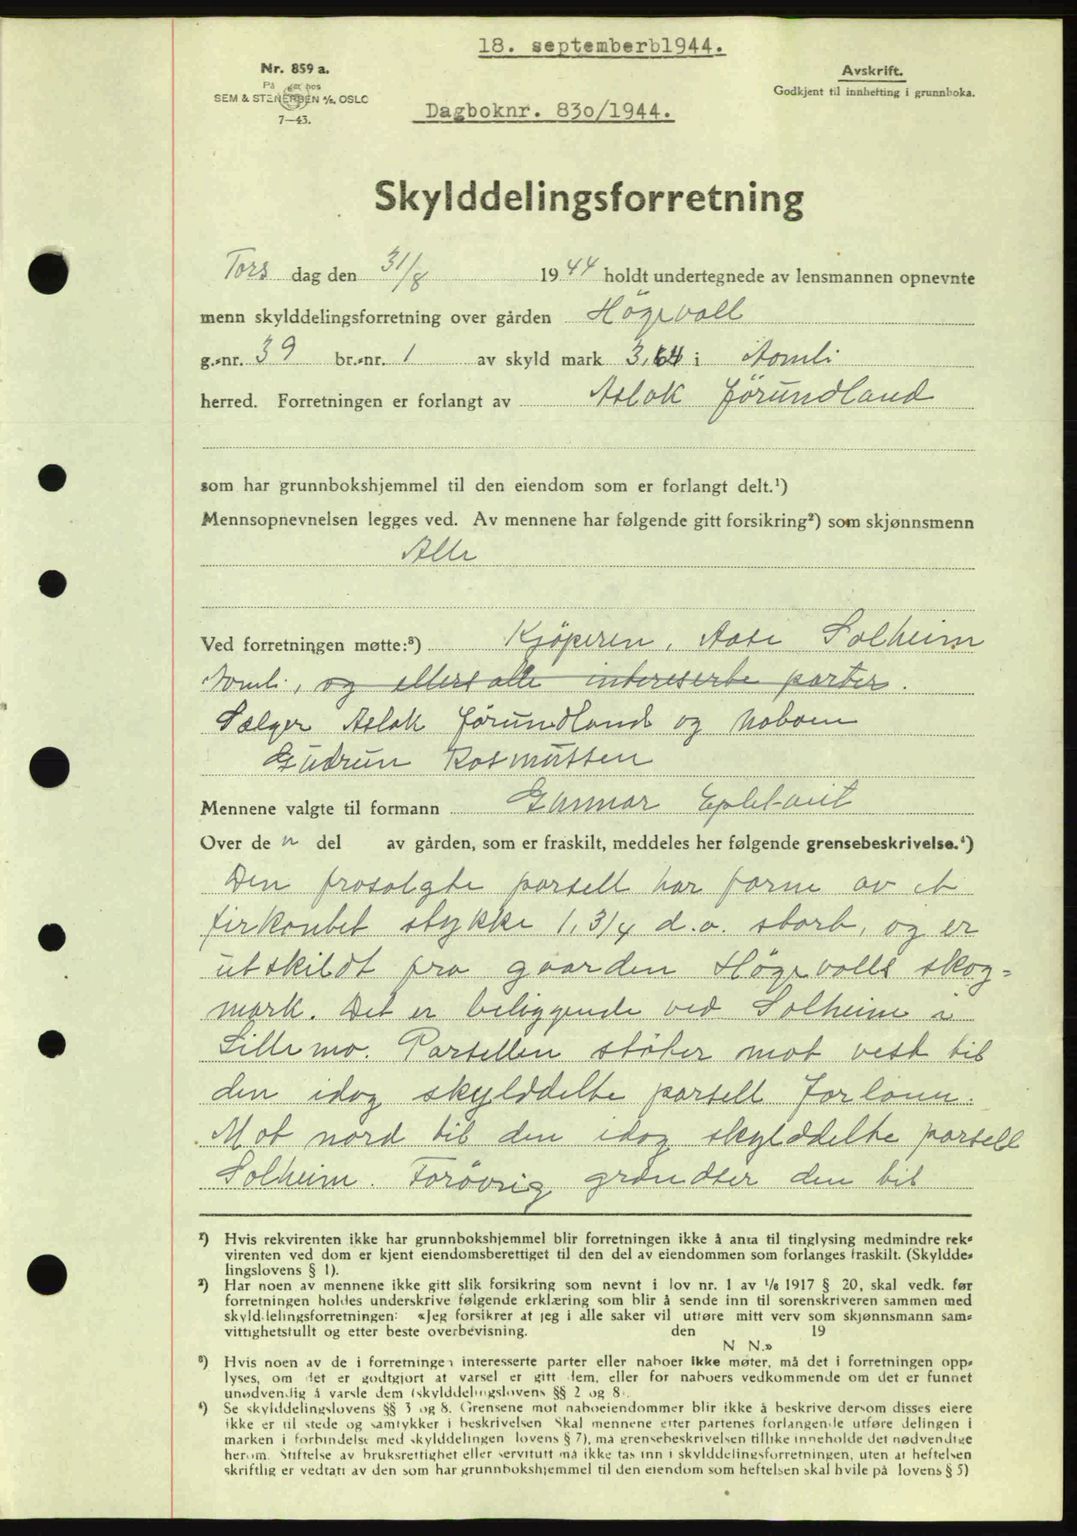 18. septemberb1944.
Nr. 859 a.
På hos
SEM & STENERSEN A/S, OSLO
7—43.
Avskrift.
Godkjent til innhefting i grunnboka.
Dagboknr. 830/1944.
Skylddelingsforretning
Tors dag den 31/8 1944 holdt undertegnede av lensmannen opnevnte
menn skylddelingsforretning over gården Högevoll
g.-nr. 39 br.-nr. 1 av skyld mark 3,64 i Aamli
herred. Forretningen er forlangt av Aslak Jörundland
som har grunnbokshjemmel til den eiendom som er forlangt delt.¹)
Mennsopnevnelsen legges ved. Av mennene har følgende gitt forsikring²) som skjønnsmenn
Alle
Ved forretningen møtte:³) Kjöperen, Aase Solheim
Aamli, og ellers alle intereserte parter.
Sælger Aslak Jörundland og naboen
Gudrun Rasmussen
Mennene valgte til formann Gunnar Epletveit
Over den del av gården, som er fraskilt, meddeles her følgende grensebeskrivelse.⁴)
Den frasolgte parsell har forme av et
firkantet stykke 1,3/4 d.a. stort, og er
utskildt fra gaarden Högevolls skog=
mark. Det er beliggende ved Solheim i
Lillemo. Parsellen støter mot vest til
den idag skylddelte parsell Furlann.
Mot nord til den idag skylddelte parsell
Solheim. Forövrig grændser den til
¹) Hvis rekvirenten ikke har grunnbokshjemmel blir forretningen ikke å anta til tinglysing medmindre rek-
virenten ved dom er kjent eiendomsberettiget til den del av eiendommen som forlanges fraskilt. (Skyldde-
lingslovens § 1).
²) Har noen av mennene ikke gitt slik forsikring som nevnt i lov nr. 1 av 1/6 1917 § 20, skal vedk. før
forretningen holdes underskrive følgende erklæring som blir å sende inn til sorenskriveren sammen med
skylddelingsforretningen: «Jeg forsikrer at jeg i alle saker vil utføre mitt verv som skjønnsmann sam-
vittighetsfullt og etter beste overbevisning. den 19
N N.»
³) Hvis noen av de i forretningen interesserte parter eller naboer ikke møter, må det i forretningen opp-
lyses, om det er godtgjort at varsel er gitt dem, eller for naboers vedkommende om det er funnet
unødvendig å varsle dem (skylddelingslovens §§ 2 og 8).
⁴) Se skylddelingslovens §§ 3 og 8. Grensene mot naboeiendommer blir ikke å beskrive dersom disses eiere
ikke er til stede og samtykker i beskrivelsen Skal mennene etter partenes forlangende utføre delingen i
marken i forbindelse med skylddelingen lovens § 7), må grensebeskrivelsen tillike inneholde det nødvendige
herom. Stiftelse av bruksrettighet eller servitutt må ikke tas inn i skylddelingsforretningen, uten at heftelsen
skriftlig er vedtatt av den som har grunnbokshjemmel til den eiendom som heftelsen skal hvile på lovens § 5)